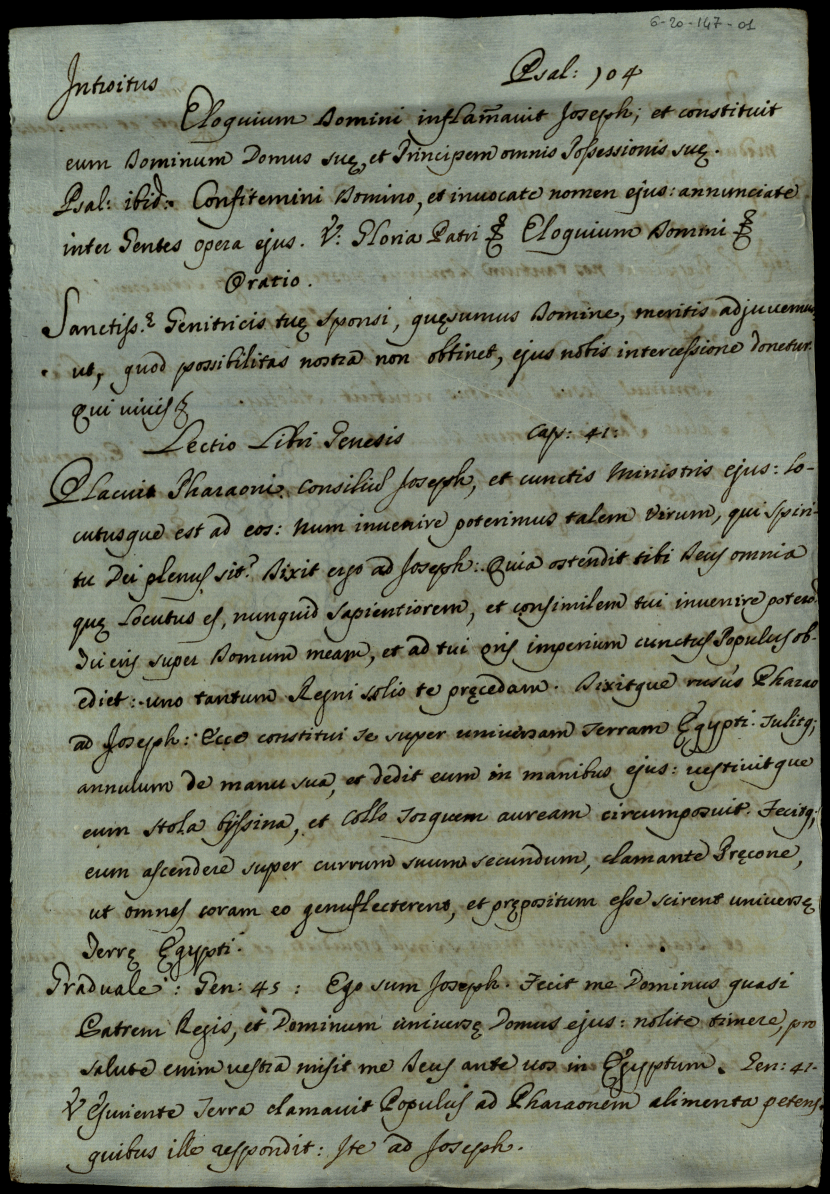 6-20-147-01
Introitus Psal: 104
Eloquium Domini inflam̃avit Joseph; et constituit
eum Dominum Domus suę, et Principem omnis Possessionis suę.
Psal: ibid: Confitemini Domino, et invocate nomen ejus: annunciate
inter Gentes opera ejus. V: Gloria Patri &c Eloquium Domini &c
Oratio.
Sanctiss.ę Genitricis tuę Sponsi, quęsumus Domine, meritis adjuvemur,
ut, quod possibilitas nostra non obtinet, ejus nobis intercessione donetur.
Qui vivis &c
Lectio Libri Genesis Cap: 41:
Placuit Pharaoni Consiliũ Joseph, et cunctis Ministris ejus: Lo-
cutusque est ad eos: Num invenire poterimus talem Virum, qui Spiri-
tu Dei plenus sit? Dixit ergo ad Joseph: Quia ostendit tibi Deus omnia
quę Locutus es, nunquid Sapientiorem, et consimilem tui invenire poterõ
Tu eris super Domum meam, et ad tui oris imperium cunctus Populus ob-
ediet: uno tantum Regni solio te pręcedam. Dixitque rursus Pharao
ad Joseph: Ecce constitui te super universam Terram Ęgypti. Tulitq;
annulum de manu sua, et dedit eum in manibus ejus: vestivitque
eum stola byssina, et Collo Torquem auream circumposuit. Fecitq;
eum ascendere super currum suum secundum, clamante Pręcone,
ut omnes coram eo genuflecterent, et prępositum esse scirent universę
Terrę Ęgypti.
Graduale: Gen: 45: Ego sum Joseph. Fecit me Dominus quasi
Patrem Regis, et Dominum universę Domus ejus: nolite timere, pro
salute enim vestra misit me Deus ante vos in Ęgyptum. Gen: 41.
V Esuriente Terra clamavit Populus ad Pharaonem alimenta petens
quibus ille respondit: Ite ad Joseph.